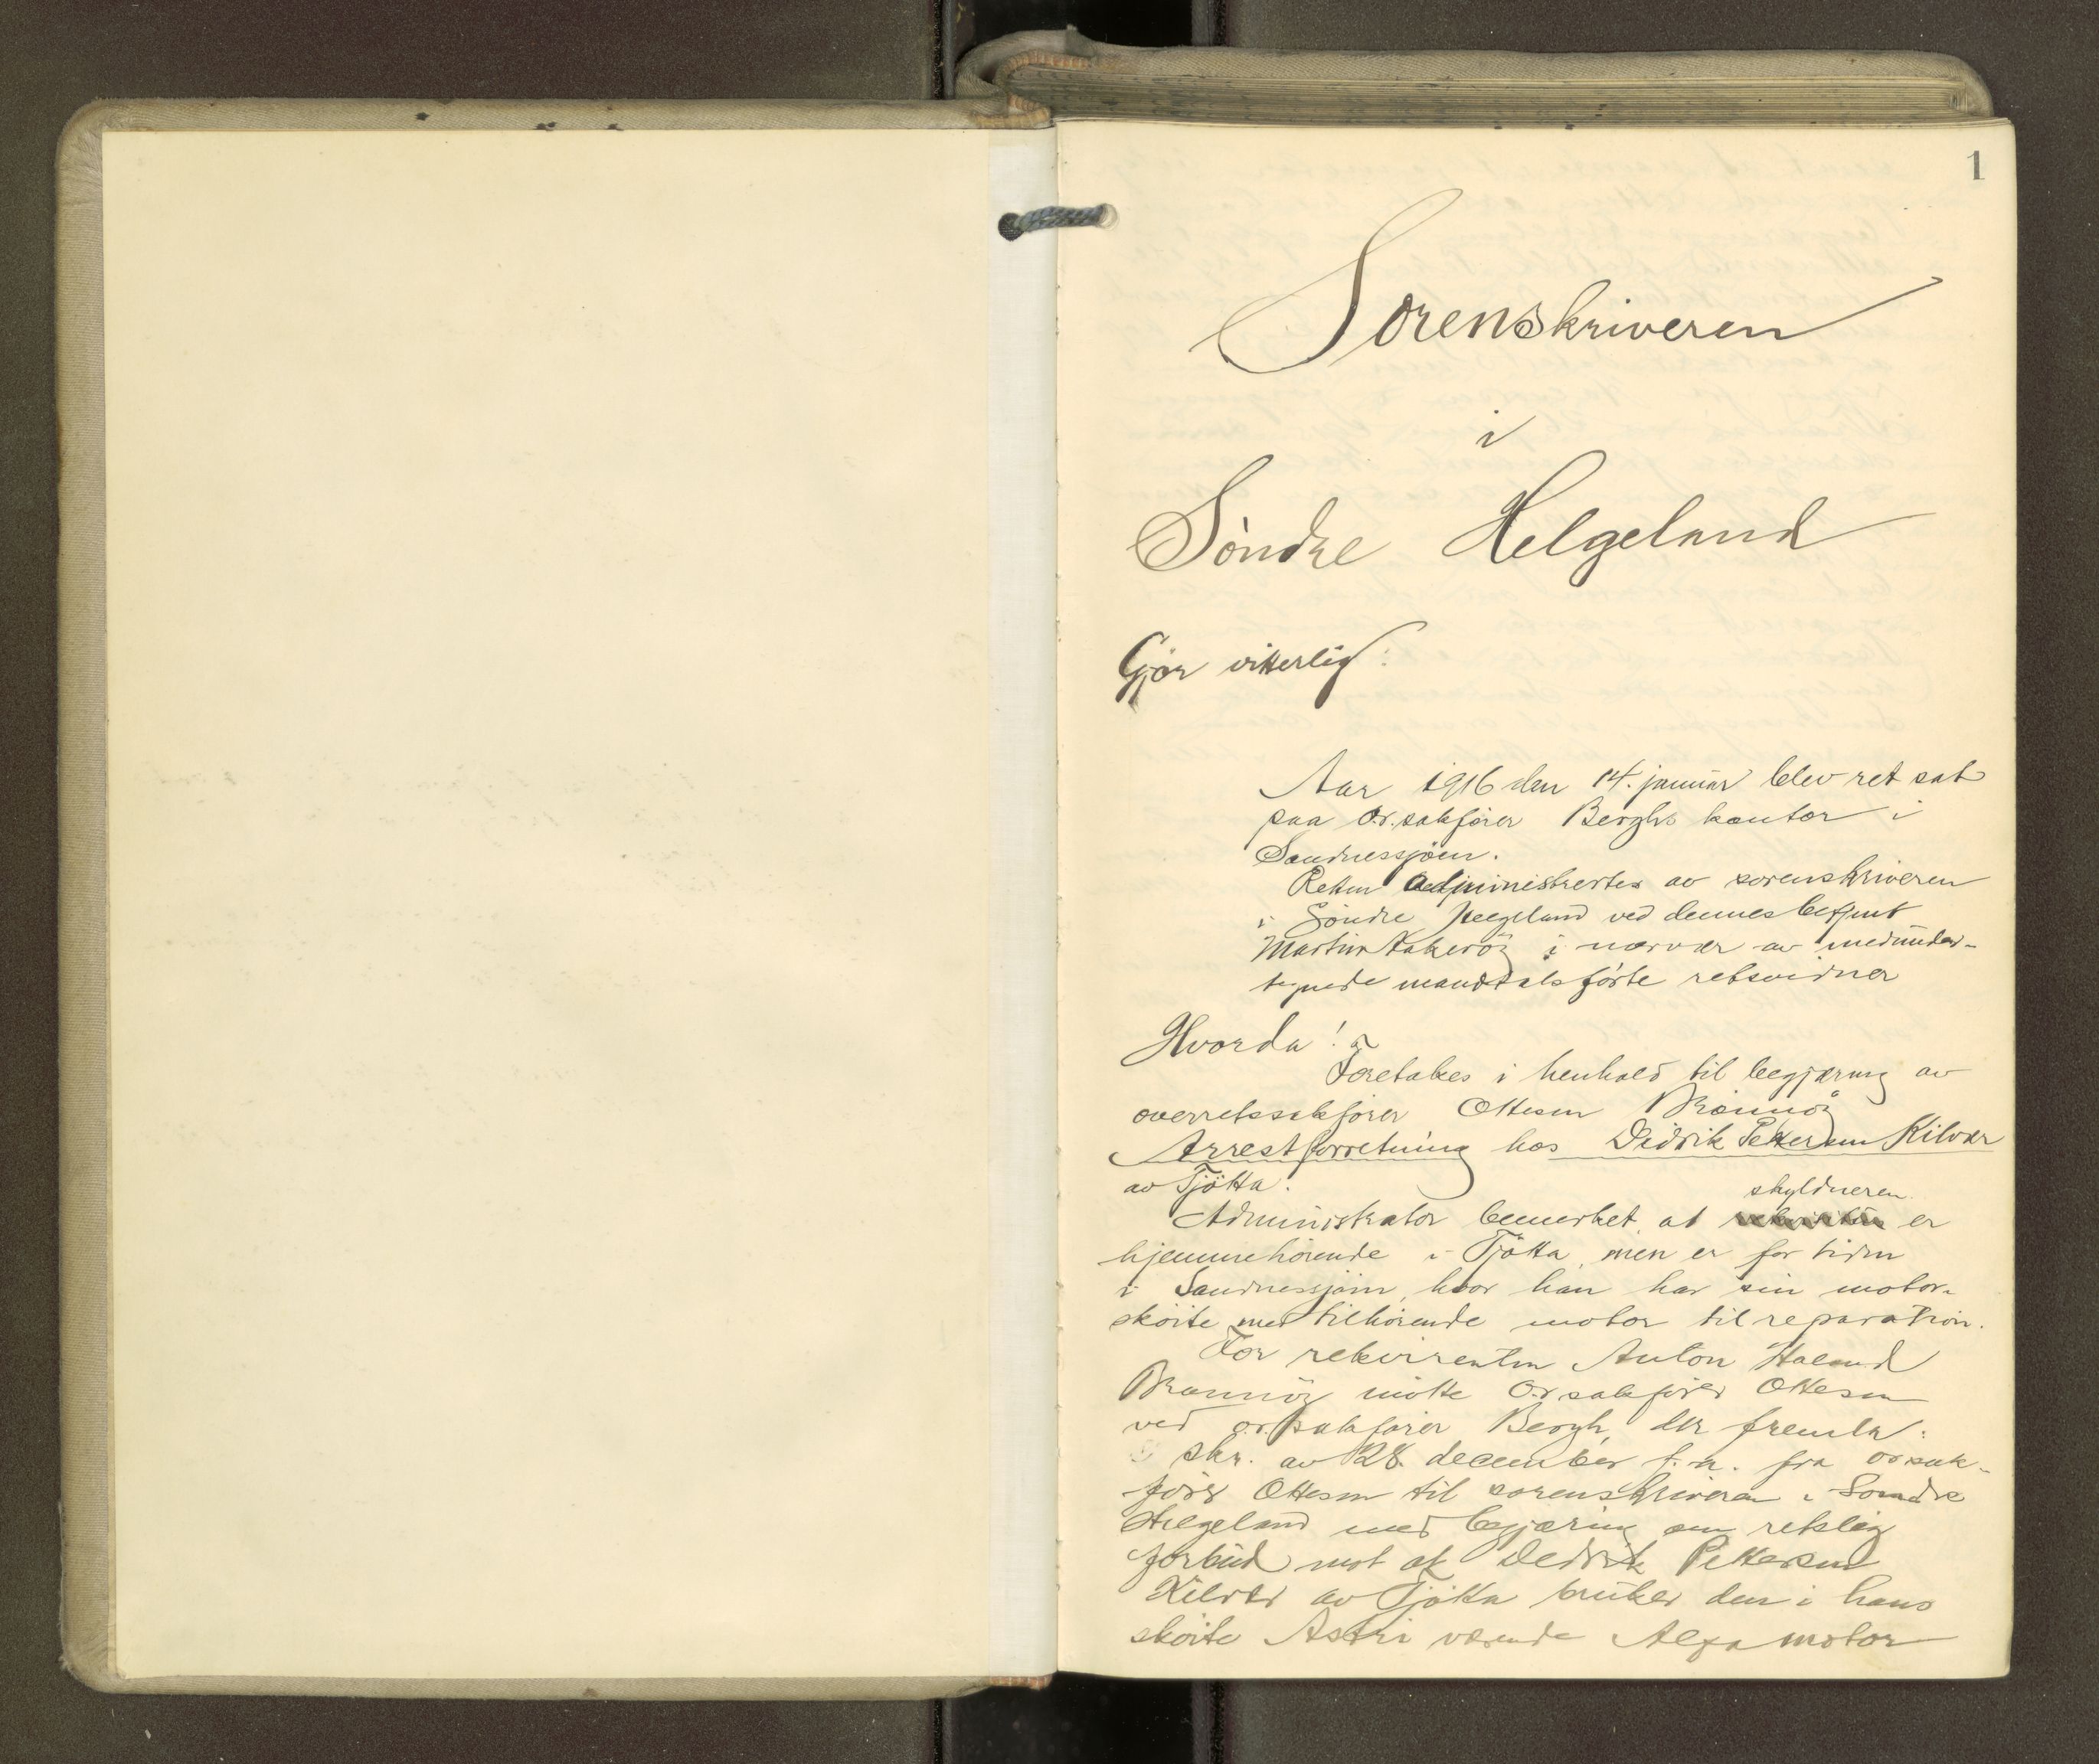 1
Sorenskriveren
i
Söndre Helgeland
Gjör vitterlig:
Aar 1916 den 14. januar blev ret sat
paa o.r.sakförer Berghs kontor i
Sandnessjöen.
Retten administrertes av sorenskriveren
i Söndre Helgeland ved dennes befuldm
Martin Aakeröy i nærvær av medunder-
tegnede mandtalsförte retsvidner
Hvorda!
Foretakes i henhold til begjæring av
overretssakförer Ottesen Brönnöy
Arrestforretning hos Didrik Pettersen Kilvær
av Tjötta.
Administrator bemerket at skyldneren er
hjemmehörende i Tjötta, men er for tiden
i Sandnessjöen, hvor han har sin motor-
sköite med tilhörende motor til reparation.
For rekvirenten Anton
Brönnöy mötte O.r.sakförer Ottesen
ved o.r.sakförer Bergh, der fremla:
skr. av 28. december f.a. fra orsak-
förer Ottesen til sorenskriveren i Söndre
Helgeland med begjæring om retslig
forbud mot at Didrik Pettersen
Kilvær av Tjötta bruker den i hans
sköite Astri værende Alfa motor